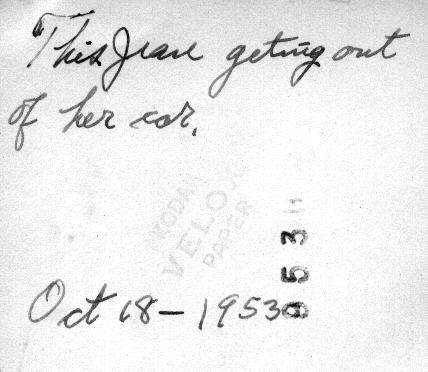 This Jean geting out
of her car.
KODAK
VELOX
PAPER
953
Oct 18 - 1953